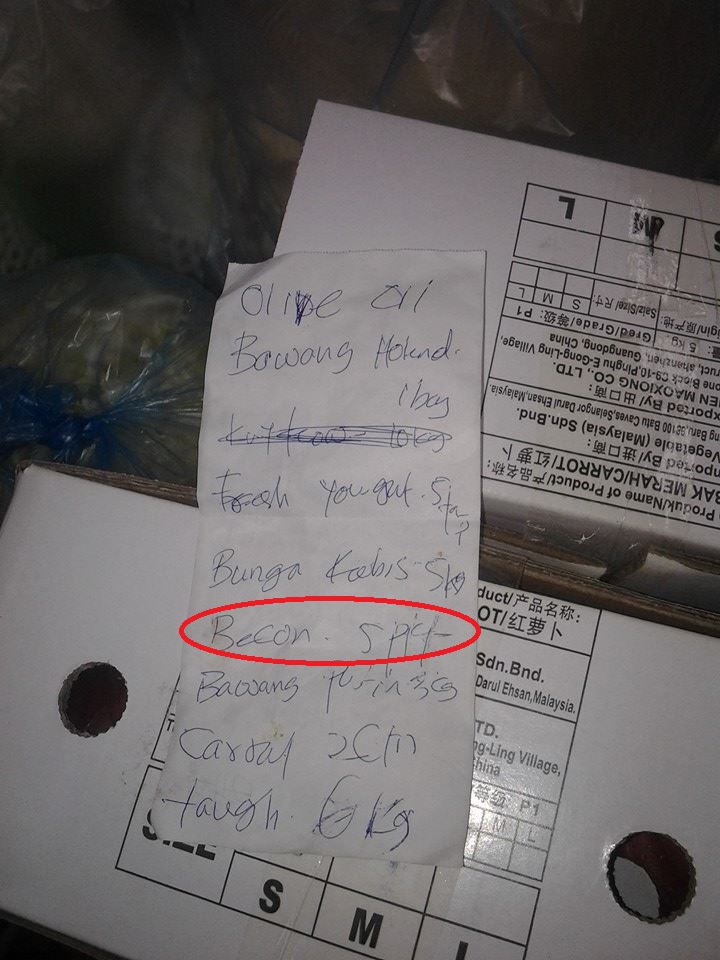 Olive Oil
Bawang Holand.
1 bag
Fresh Yougut. 5
Bunga Kobis-5kg
Becon. 5 pkt
Bawang
Carrat 2Ctn
taugh. 6 kg
L
M
S
L M S Saiz/Size/尺寸:
Gred/Grade/等级: P1
5 kg
igin/原产地:
ne Block C9-10,Pinghu E-Gong-Ling Village,
truct, shenzhen, Guangdong, China
HEN MAOXIONG CO., LTD.
ported By/ 出口商:
ng Bang 36100 Batu Caves,Selangor Darul Ehsan,Malaysia.
Vegetable (Malaysia) Sdn.Bnd.
ported By/ 进口商:
BAK MERAH/CARROT/红萝卜
Produk/Name of Product/产品名称:
duct/产品名称:
OT/红萝卜
Sdn.Bnd.
Darul Ehsan,Malaysia.
TD.
ng-Ling Village,
hina
等级: P1
M L
SIZE
S
M
L